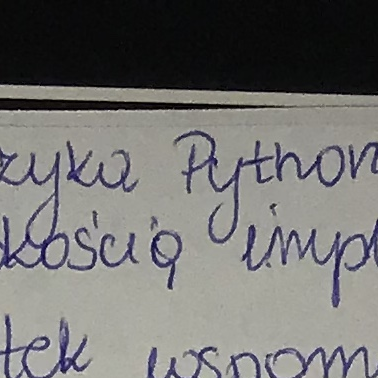 zyka Python
kością impl
tek wspom